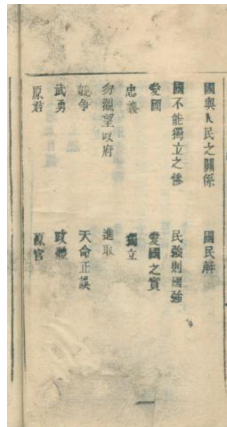 國與人民之關係　國民解
國不能獨立之慘　民強則國強
愛國　愛國之實
忠義　獨立
勿觀望政府　進取
競爭　天命正誤
武勇　政體
原君　原官
一